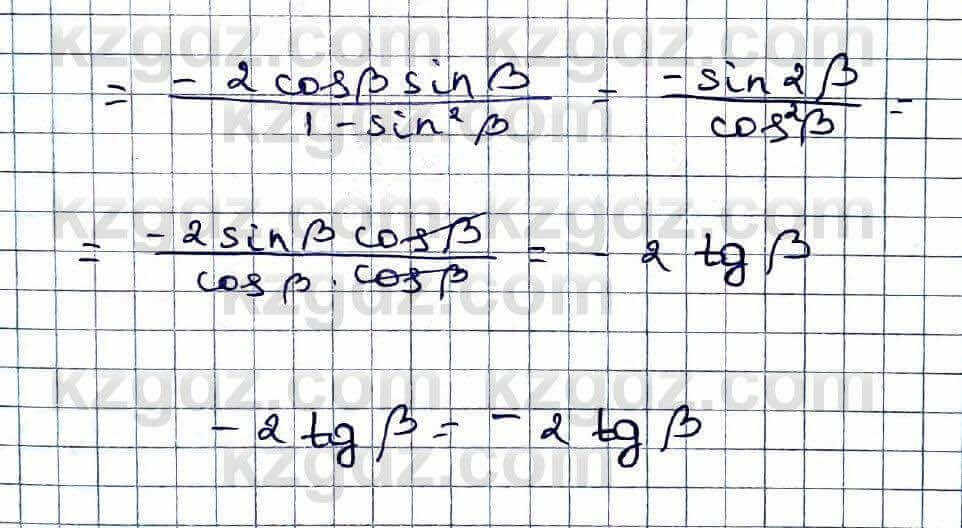 kzgdz.com kzgdz.com
= (-2 cosβ sinβ)/(1 - sin²β) = (-sin2β)/(cos²β) =
kzgdz.com
kzgdz.com kzgdz.com
= (-2 sinβ cosβ)/(cosβ · cosβ) = - 2 tgβ
kzgdz.com
kzgdz.com kzgdz.com
-2 tgβ = -2 tgβ
kzgdz.com